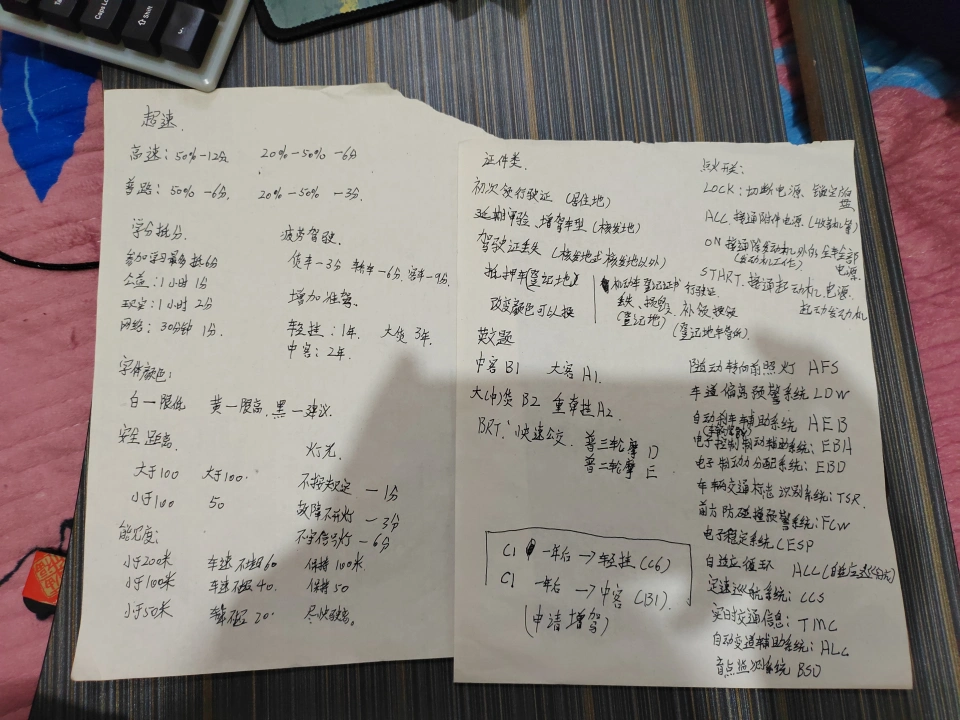 超速.
高速: 50% - 12分 20% - 50% - 6分
普路: 50% - 6分, 20% - 50% - 3分.
学分抵分. 疲劳驾驶.
参加学习最多抵6分 货车 - 3分 - 6分, 客车 - 9分.
公益: 1小时 1分
现定: 1小时 2分 增加准驾.
网络: 30分钟 1分. 轻挂: 1年. 大货 3年.
中客: 2年.
字体颜色:
白 - 限低 黄 - 限高, 黑 - 建议.
安全距离. 灯光.
大于100 大于100. 不按规定 - 1分
小于100 50 故障不开灯 - 3分
能见度: 信号灯 - 6分
小于200米 车速不超60 保持100米.
小于100米 车速不超40. 保持50
小于50米 车速不超20 尽快驶离。
证件类.
初次领行驶证 (居住地)
延期审验、增驾车型 (核发地)
驾驶证丢失 (核发地或核发地以外)
抵押车(登记地)
改变颜色可以换
机动车登记证书
丢失、损毁
(登记地)
行驶证
补领换领
(登记地车管所)
英文题
中客 B1 大客 A1.
大(中)货 B2 重牵挂 A2.
BRT: 快速公交. 普三轮摩 D
普二轮摩 E
C1 一年后 → 轻挂 (C6)
C1 一年后 → 中客 (B1).
(申请增驾)
点火开关:
LOCK: 切断电源、锁定方向盘
ALL 接通附件电源 (收音机等)
ON 接通除起动机外的全车全部电源.
(发动机工作)
START. 接通起动机电源.
起动发动机
随动转向前照灯 AFS
车道偏离预警系统 LDW
自动刹车辅助系统 AEB
电子控制制动辅助系统: EBA
电子制动力分配系统: EBD
车辆交通标志识别系统: TSR.
前方防碰撞预警系统: FCW
电子稳定系统 ESP
自适应循环 ALL (自适应巡航)
定速巡航系统: CCS
实时交通信息: TMC
自动变道辅助系统: ALC
盲点监测系统 BSD